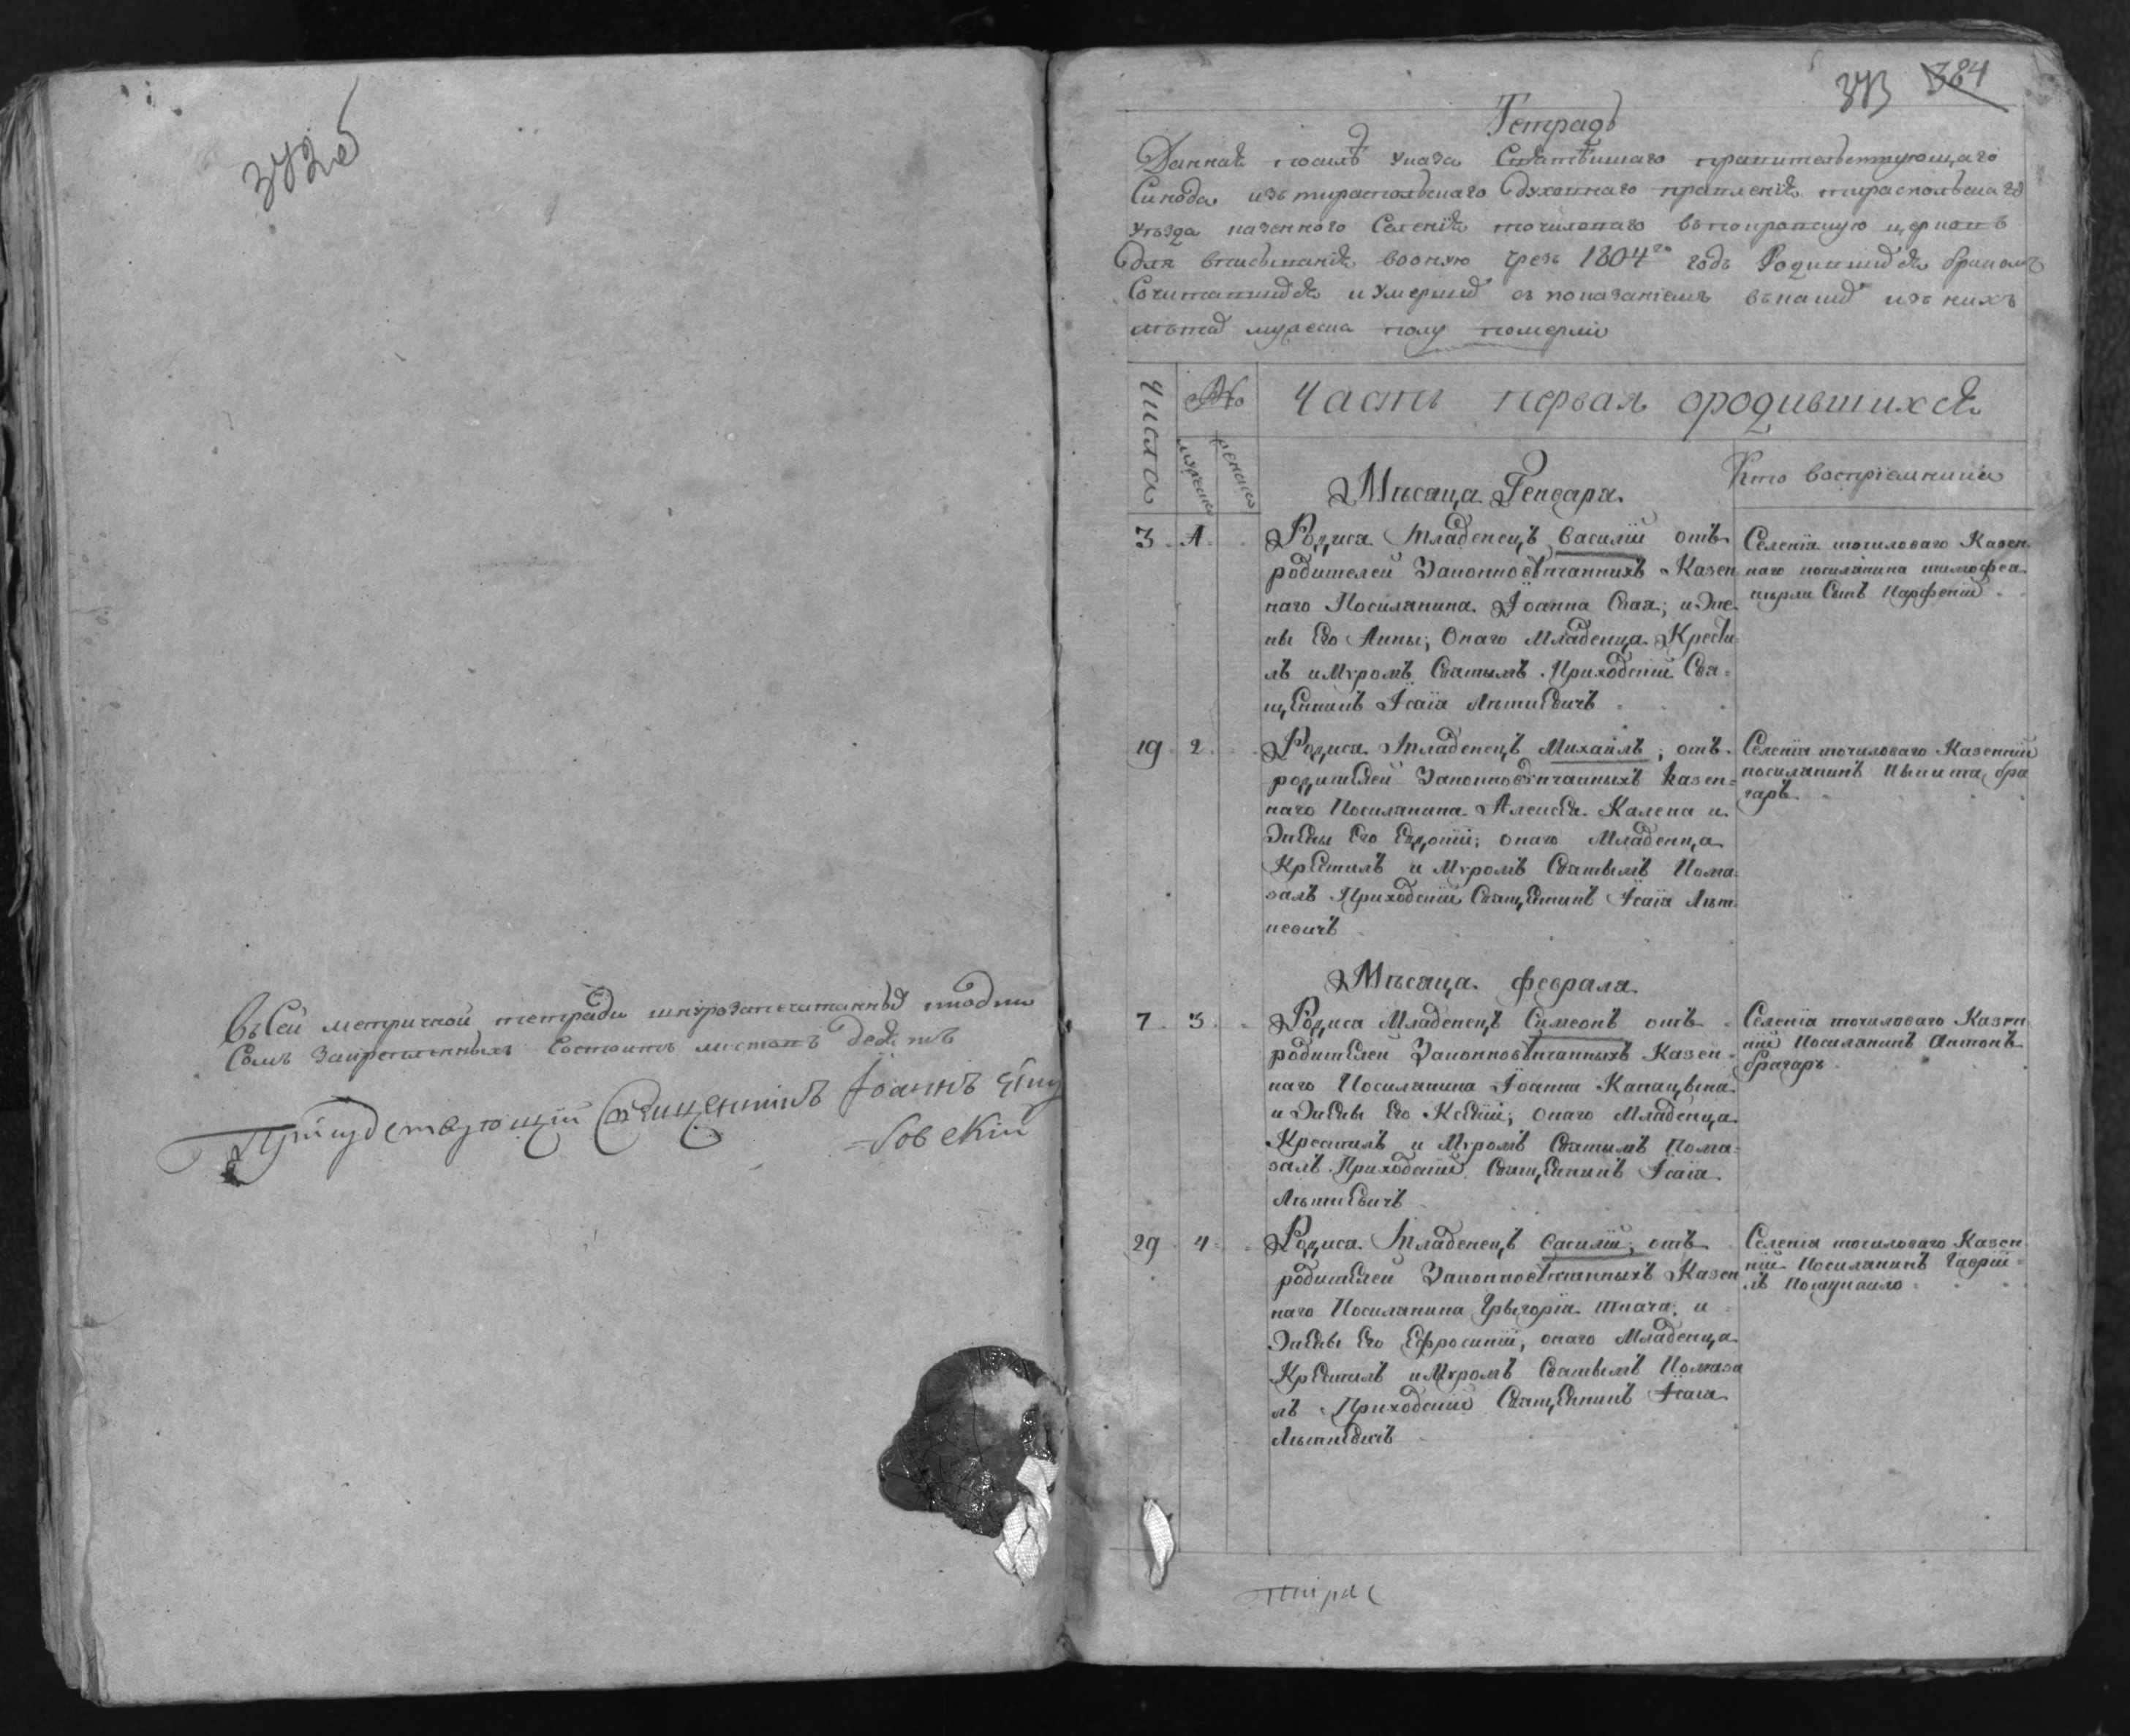 372об
Въ сей метричной тетради шнурозапечатанныхъ и под
самъ закрепленныхъ состоитъ листовъ девять
Присудствующій Священникъ Іоаннъ
-бовскій
373 384
Тетрадь
Данная по силѣ указа Святѣйшаго правительствующаго
Синода изъ тираспольскаго духовнаго правленія тираспольскаго
уѣзда казенного Селенія точиловаго въ покровскую церковь
для вписыванія во оную чрезъ 1804го годъ Родившихся бракомъ
Сочитавшихся и умершихъ съ показаніемъ въ какихъ изъ нихъ
лѣтахъ мужеска полу померли
Числа
№
Часть первая о родившихся
мужеска
женска
Мѣсяца Генваря.
Кто воспріемники
3. 1. Родися Младенецъ Василій отъ
родителей Законновѣнчаннихъ Казен
наго Посилянина Іоанна Скал; и Же
ны Его Анны; Онаго Младенца Крести
лъ и Мѵромъ Святымъ Приходскій Свя=
щенникъ Ісаія Лѣткевичъ
Селенія точиловаго Казен
наго посилянина тимофея
Сынъ Парфеній
19. 2. Родися Младенецъ Михаилъ, отъ
родителей Законновѣнчанныхъ Казен=
наго Посилянина Алексея Калека и
Жены Его Евдокіи; онаго Младенца
Крестилъ и Мѵромъ Святымъ Пома
залъ Приходскій Священникъ Ісаія Лѣт
кевичъ
Селенія точиловаго Казенній
посилянинъ Никита бра
гаръ
Мѣсяца февраля
7 3. Родися Младенецъ Симеонъ отъ
родителей Законновѣнчанныхъ Казен
наго Посилянина Іоанна
и Жены Его Ксеніи; онаго Младенца
Крестилъ и Мѵромъ Святымъ Пома
залъ Приходскій Священникъ Ісаія
Лѣткевичъ
Селенія точиловаго Казен
ній Посилянинъ Антонъ
брагаръ
29 4 Родися Младенецъ Василій, отъ
родителей Законновѣнчанныхъ Казен
наго Посилянина Грыгорія Ткача и
Жены Его Ефросиніи, онаго Младенца
Крестилъ и Мѵромъ Святымъ Помаза
лъ Приходскій Священникъ Ісаія
Лѣткевичъ
Селенія точиловаго Казен
ній Посилянинъ Гаврии
лъ
тирас